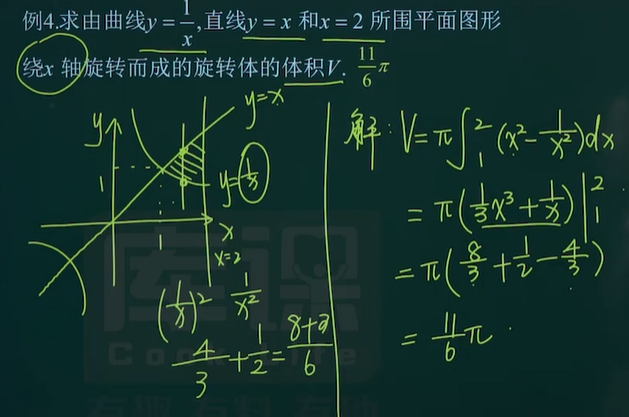 例4.求由曲线y=1/x,直线y=x 和x=2 所围平面图形
绕x 轴旋转而成的旋转体的体积V. 11/6 π
y
y=x
1
y=1/x
1
x
x=2
(1/x)² 1/x²
4/3+1/2=(8+3)/6
解: V=π∫₁²(x²-1/x²)dx
=π(1/3x³+1/x)|₁²
=π(8/3+1/2-4/3)
=11/6π.
库课
Cook Life
有趣 有料 有种